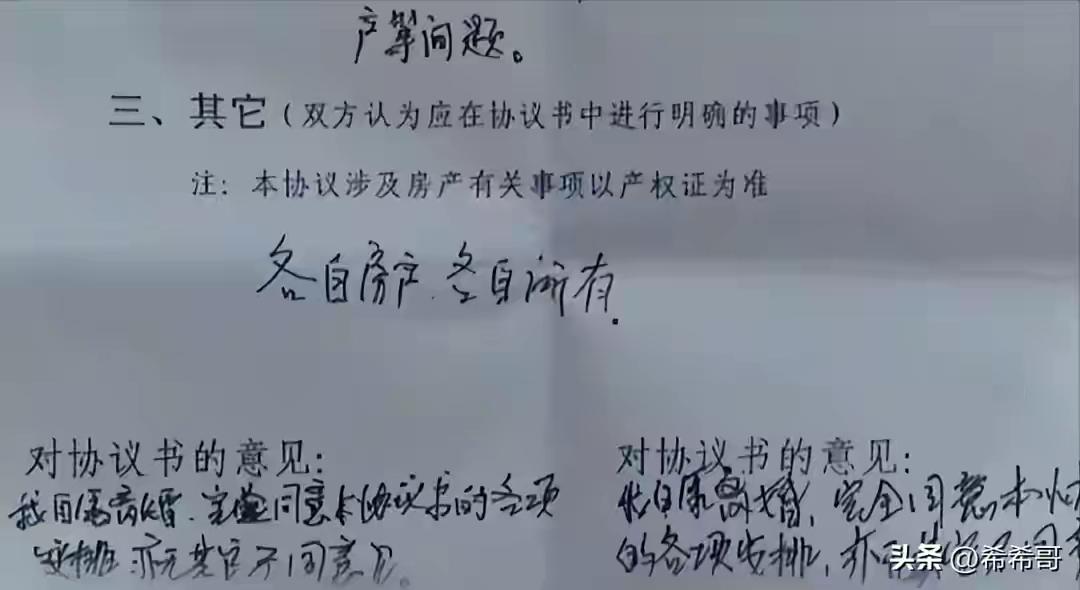 产等问题。
三、其它(双方认为应在协议书中进行明确的事项)
注: 本协议涉及房产有关事项以产权证为准
各自房产.各自所有.
对协议书的意见:
我自愿离婚.完全同意本协议书的各项
安排.亦无其它不同意见。
对协议书的意见:
我自愿离婚,完全同意本协
的各项安排,亦不同
头条 @希希哥